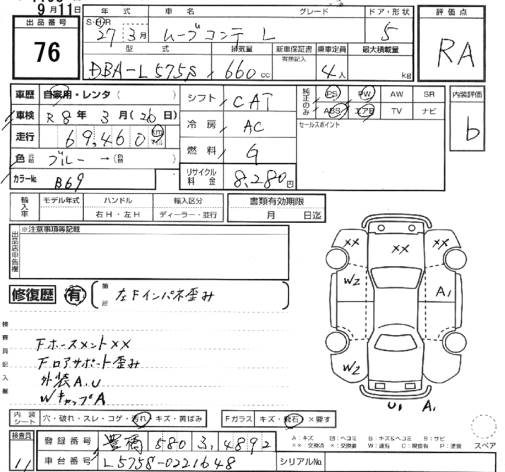 9月11日
出品番号 76
年式 車名 グレード ドア・形状
S・H 27年 3月 ムーブコンテ L 5
型式 排気量 新車保証書 乗車定員 最大積載量
有無記載
DBA-L575S 660cc 4人 kg
評価点 RA
車歴 自家用・レンタ( )
車検 R8年 3月(26日)
走行 69,460
色 ブルー →
カラーNo. B69
シフト CAT
冷房 AC
燃料 G
リサイクル料金 8,280円
純正のみ PS PW AW SR
ABS エアB TV ナビ
セールスポイント
内装評価 b
輸入車 モデル年式 ハンドル 輸入区分
右H・左H ディーラー・並行
書類有効期限
月 日迄
出品店申告欄 ※注意事項等記載
修復歴 有 箇所 左Fインパネ歪み
検査員記入欄
Fホースメント××
Fロアサポート歪み
外装A.U
WキャップA
×× ×× ××
W2 A1
W2
U1 A1
内装シート 穴・破れ・スレ・コゲ・汚れ・キズ・黄ばみ
Fガラス キズ・飛石・×要す
スペア
検査員 11
登録番号 豊橋 580 ス 4892
車台番号 L575S-0221648
シリアルNo.
A:キズ U:ヘコミ B:キズ&ヘコミ S:サビ